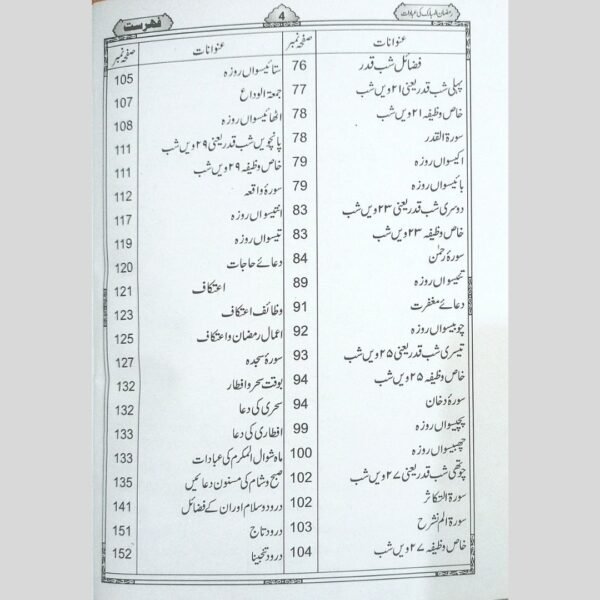 رمضان المبارک کی عبادات
4
فہرست
عنوانات صفحہ نمبر
فضائل شب قدر 76
پہلی شب قدر یعنی ۲۱ ویں شب 77
خاص وظیفہ ۲۱ ویں شب 78
سورۃ القدر 78
اکیسواں روزہ 79
بائیسواں روزہ 79
دوسری شب قدر یعنی ۲۳ ویں شب 83
خاص وظیفہ ۲۳ ویں شب 83
سورۂ رحمٰن 84
تئیسواں روزہ 89
دعائے مغفرت 91
چوبیسواں روزہ 92
تیسری شب قدر یعنی ۲۵ ویں شب 93
خاص وظیفہ ۲۵ ویں شب 94
سورۂ دخان 94
پچیسواں روزہ 99
چھبیسواں روزہ 100
چوتھی شب قدر یعنی ۲۷ ویں شب 102
سورۃ التکاثر 102
سورۃ الم نشرح 103
خاص وظیفہ ۲۷ ویں شب 104
عنوانات صفحہ نمبر
ستائیسواں روزہ 105
جمعۃ الوداع 107
اٹھائیسواں روزہ 108
پانچویں شب قدر یعنی ۲۹ ویں شب 111
خاص وظیفہ ۲۹ ویں شب 111
سورۂ واقعہ 112
انتیسواں روزہ 117
تیسواں روزہ 119
دعائے حاجات 120
اعتکاف 121
وظائف اعتکاف 123
اعمال رمضان و اعتکاف 125
سورۂ سجدہ 127
بوقت سحر و افطار 132
سحری کی دعا 132
افطاری کی دعا 133
ماہ شوال المکرم کی عبادات 133
صبح و شام کی مسنون دعائیں 135
درود و سلام اور ان کے فضائل 141
درود تاج 151
درود تنجینا 152